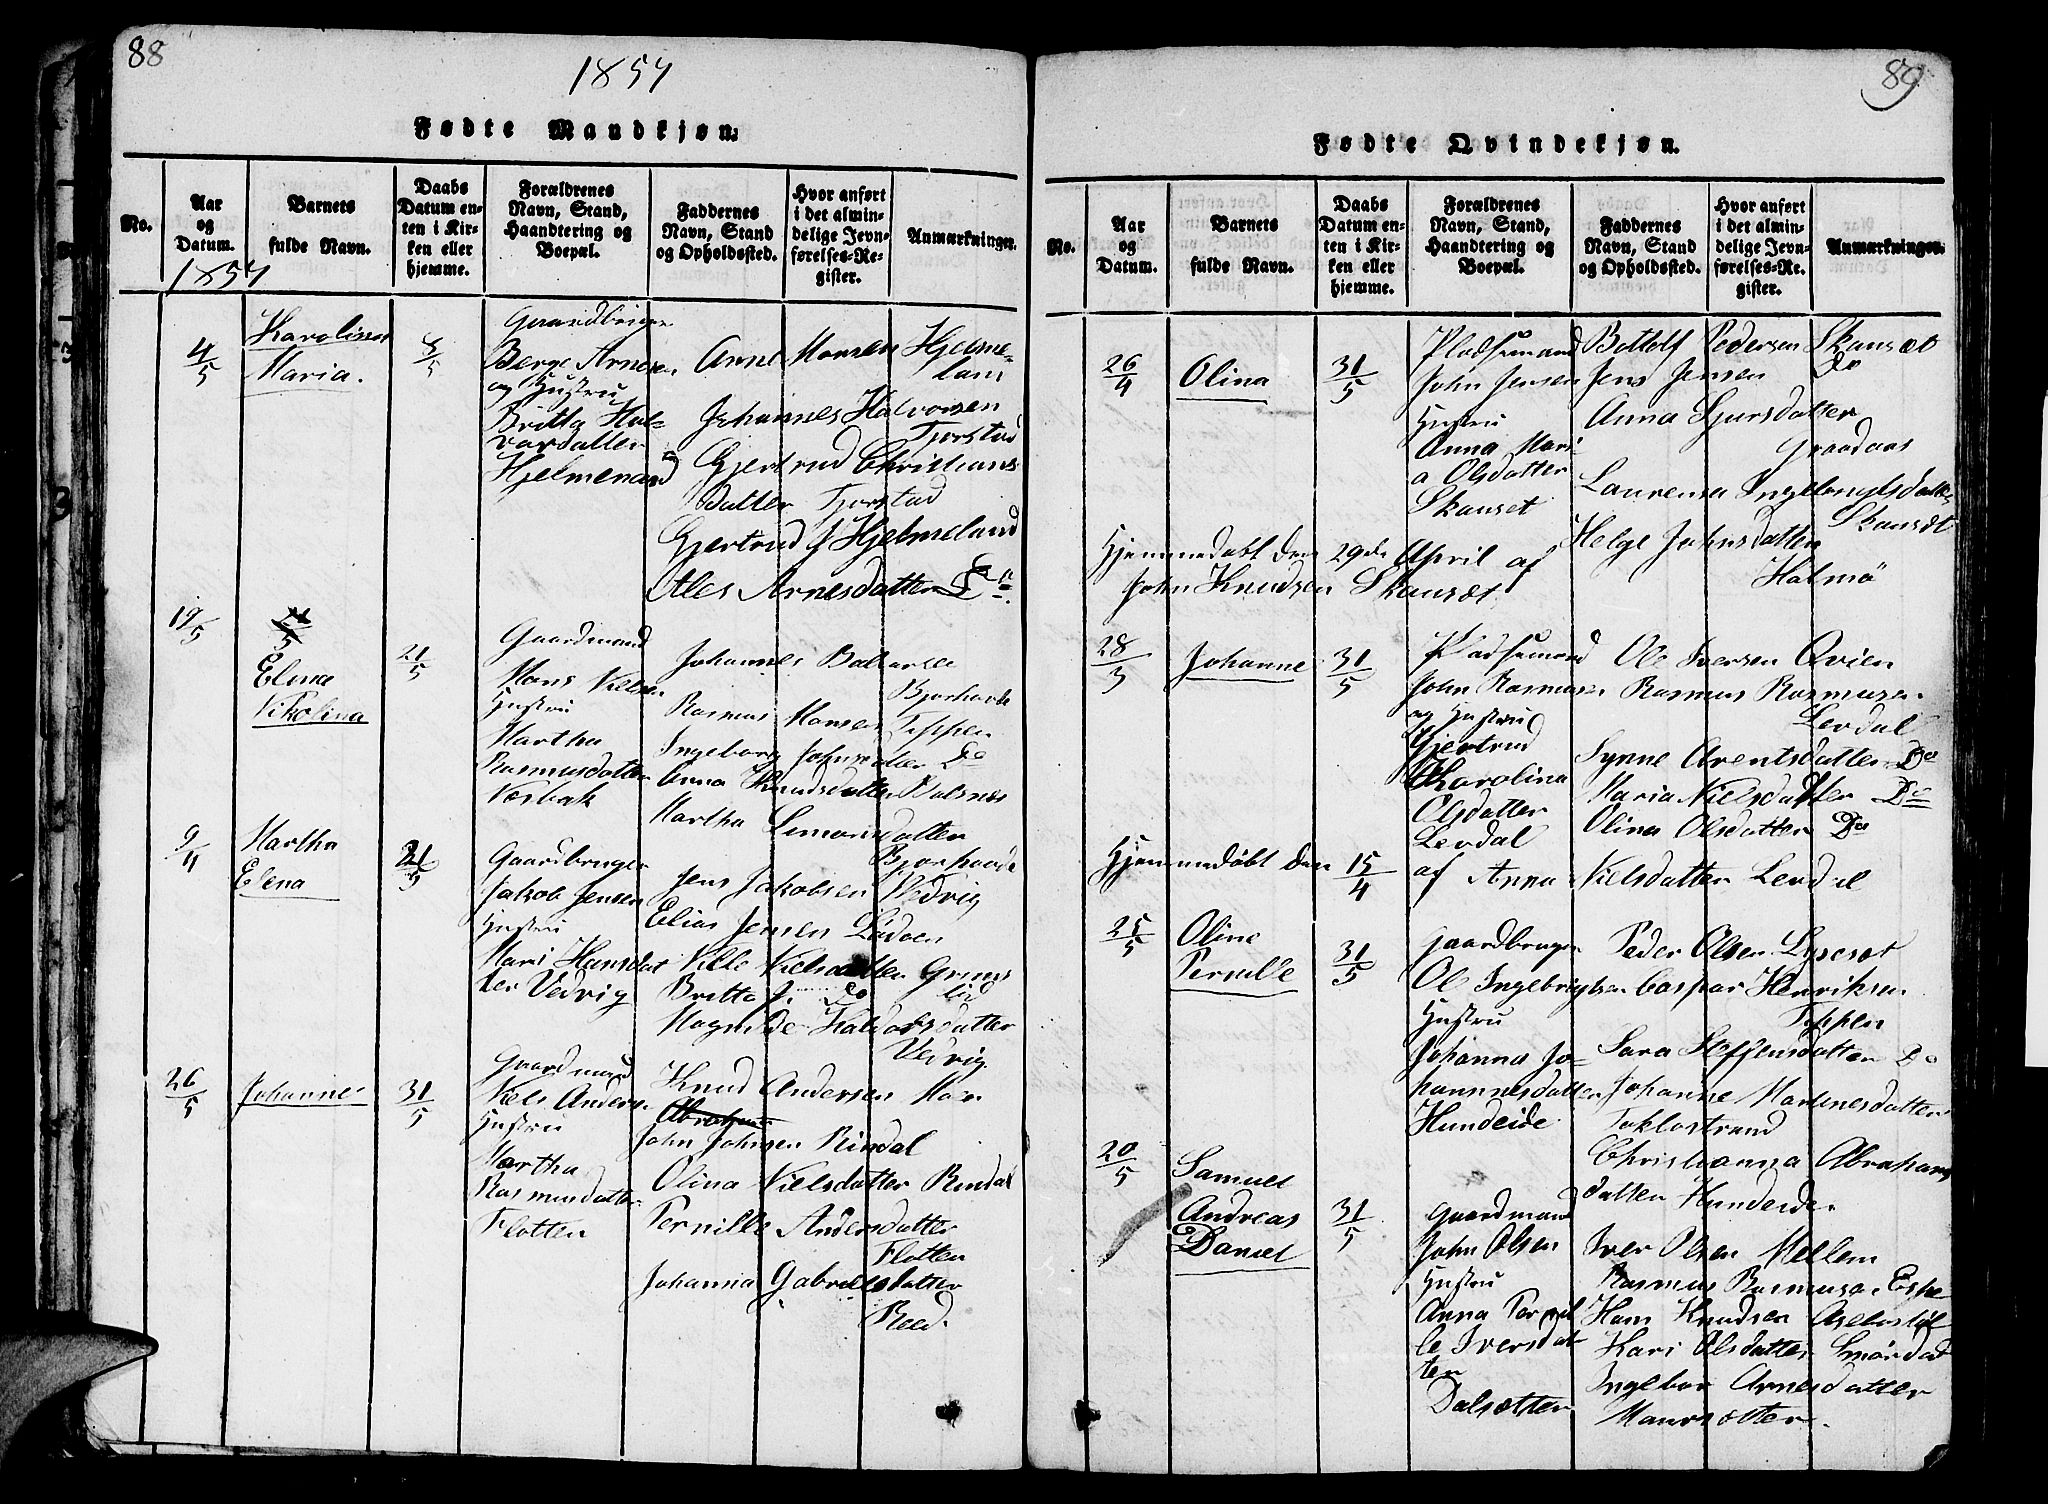 88
1857
Fødte Mandkjøn.
No.
Aar og Datum.
Barnets fulde Navn.
Daabs Datum enten i Kirken eller hjemme.
Forældrenes Navn, Stand, Haandtering og Boepæl.
Faddernes Navn, Stand og Opholdssted.
Hvor anført i det almindelige Jevnførelses-Register.
Anmærkninger.
1857
4/5
Maria.
Gaardbruger
Berge Arnesen
og Hustru
Britta Hal-
vardatter
Anne Monsen Hjelme-
land
Johannes Halvorsen
Tjorstad
Gjertrud Christians
datter Tjorstad
Gjertrud J Hjelmeland
Arnesdatter Do
19/5
Elena
Nikolina
21/5
Gaardmand
Mons Nielsen
Hustru
Martha
Rasmusdatter
Johannes
Rasmus Monsen Tippen
Ingeborg Johnsdatter Do
Anna Knudsdatter
Martha Simonsdatter
9/4
Martha
Elena
21/5
Gaardbruger
Jakob Jensen
Hustru
Mari Hansdat
ter Vedvig
Jens Jakobsen Vedvig
Elias Jensen
Nille Nielsdatter
Britta J. Do
Vedvig.
26/5
Johannes
31/5
Gaardmand
Niels Anders.
Hustru
Martha
Rasmusdatter
Flotten
Knud Andersen
John Johnsen Rindal
Olina Nielsdatter Rindal
Pernille Andersdatter
Flotten
Johanna Gabrielsdatter
Reed.
89
Fødte Qvindekjøn.
No.
Aar og Datum.
Barnets fulde Navn.
Daabs Datum enten i Kirken eller hjemme.
Forældrenes Navn, Stand, Haandtering og Boepæl.
Faddernes Navn, Stand og Opholdssted.
Hvor anført i det almindelige Jevnførelses-Register.
Anmærkninger.
26/4
Olina
31/5
Pladsemand
John Jensen
Hustru
Anna Mari
a Olsdatter
Skauset
Bottolf Pedersen Skauset
Jens Jensen Do
Anna Sjursdatter
Skauset
Helge Johnsdatter
Halmö
Hjemmedöbt den 29de April af
John Knudsen Skauset
28/3
Johanne
31/5
Pladsemand
John Rasmusen
og Hustru
Gjertrud
Karolina
Olsdatter
Lerdal
Ole Iversen Qvien
Rasmus Rasmusen
Lerdal
Synne Arentsdatter Do
Maria Nielsdatter Do
Olina Olsdatter Do
Hjemmedöbt den 15/4 af Anna Nielsdatter Lerdal
25/5
Oline
Pernille
31/5
Gaardbruger
Ol Ingebrigtsen
Hustru
Johanna Jo-
hannesdatter
Hundeide
Peder Olsen
Caspar Henriksen
Tippen
Sara Steffensdatter Do
Johanne
Christianna Abrahams
datter Hundeide
20/5
Samuel
Andreas
Daniel
31/5
Gaardmand
John Olsen
Hustru
Anna Pernil
le Iversdat
ter
Dalsætter
Iver Olsen Mellem
Rasmus Rasmusen Espe
Hans Knudsen
Kari Olsdatter Smördal
Ingebor Arnesdatter
Maursætter.